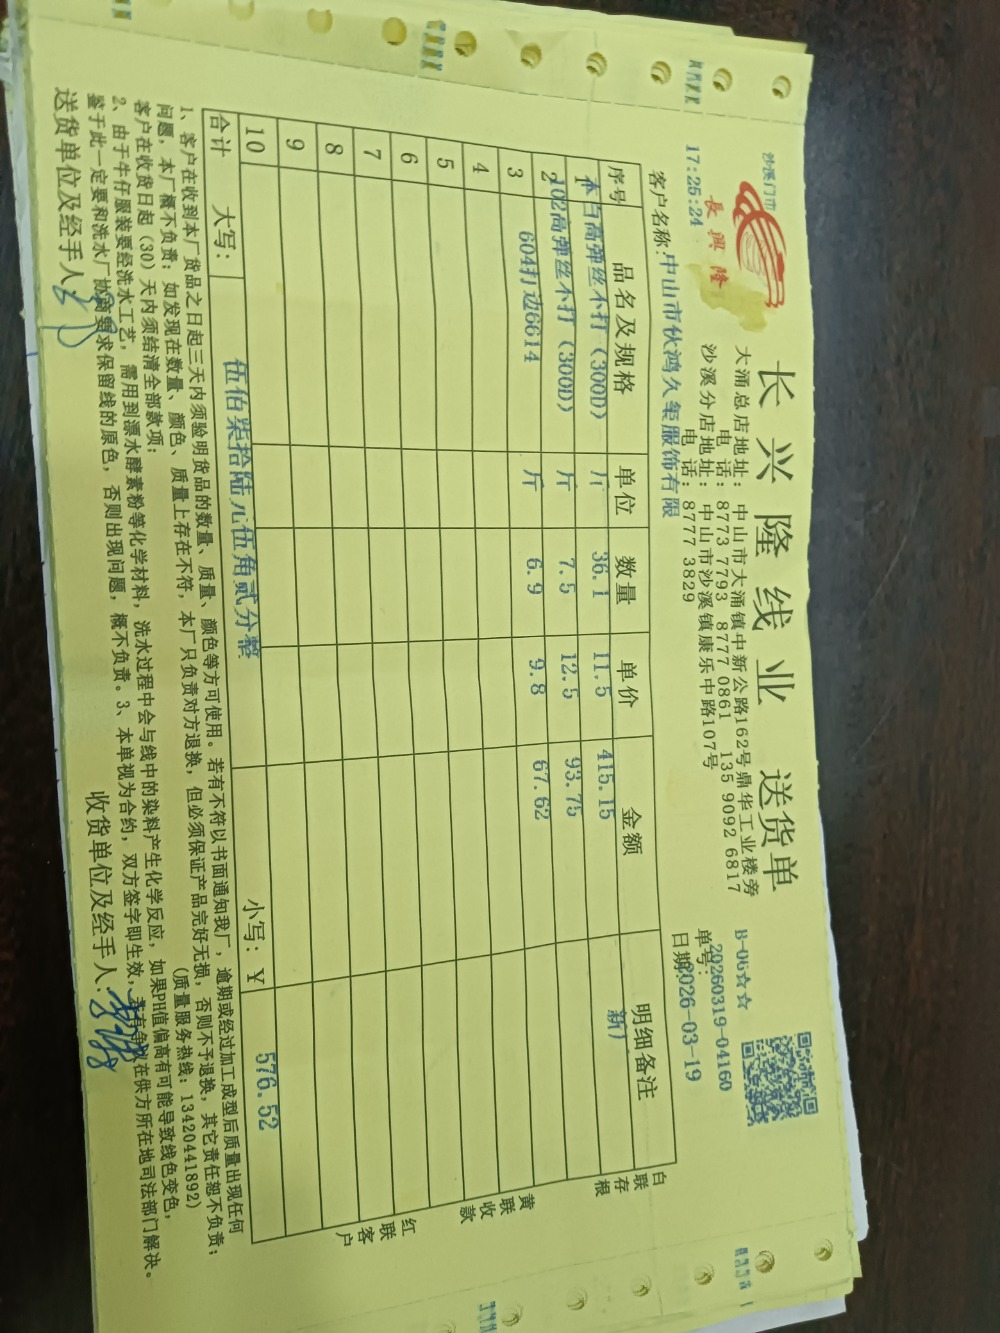 长兴隆线业 送货单
沙溪门市
長興隆
17:25:24
大涌总店地址：中山市大涌镇中新公路162号鼎华工业楼旁
电 话：8773 7793 8777 0861 135 9092 6817
沙溪分店地址：中山市沙溪镇康乐中路107号
电 话：8777 3829
B-06☆☆
单号：20260319-04160
日期：2026-03-19
客户名称：中山市伙鸿久玺服饰有限
序号 品名及规格 单位 数量 单价 金额 明细备注
1 本白高弹丝不打（300D） 斤 36.1 11.5 415.15 新厂
2 102高弹丝不打（300D） 斤 7.5 12.5 93.75
3 604打边6614 斤 6.9 9.8 67.62
4
5
6
7
8
9
10
合计 大写：伍佰柒拾陆元伍角贰分整 小写：¥ 576.52
白联存根
黄联收款
红联客户
1、客户在收到本厂货品之日起三天内须验明货品的数量、质量、颜色等方可使用。若有不符以书面通知我厂，逾期或经过加工成型后质量出现任何
问题，本厂概不负责；如发现在数量、颜色、质量上存在不符，本厂只负责对方退换，但必须保证产品完好无损，否则不予退换，其它责任恕不负责；
客户在收货日起（30）天内须结清全部款项； （质量服务热线：13420441892）
2、由于牛仔服装要经洗水工艺，需用到漂水酵素粉等化学材料，洗水过程中会与线中的染料产生化学反应，如果PH值偏高有可能导致线色变色，
鉴于此一定要和洗水厂协商要求保留线的原色，否则出现问题，概不负责。3、本单视为合约，双方签字即生效，若有争议在供方所在地司法部门解决。
送货单位及经手人： 收货单位及经手人：